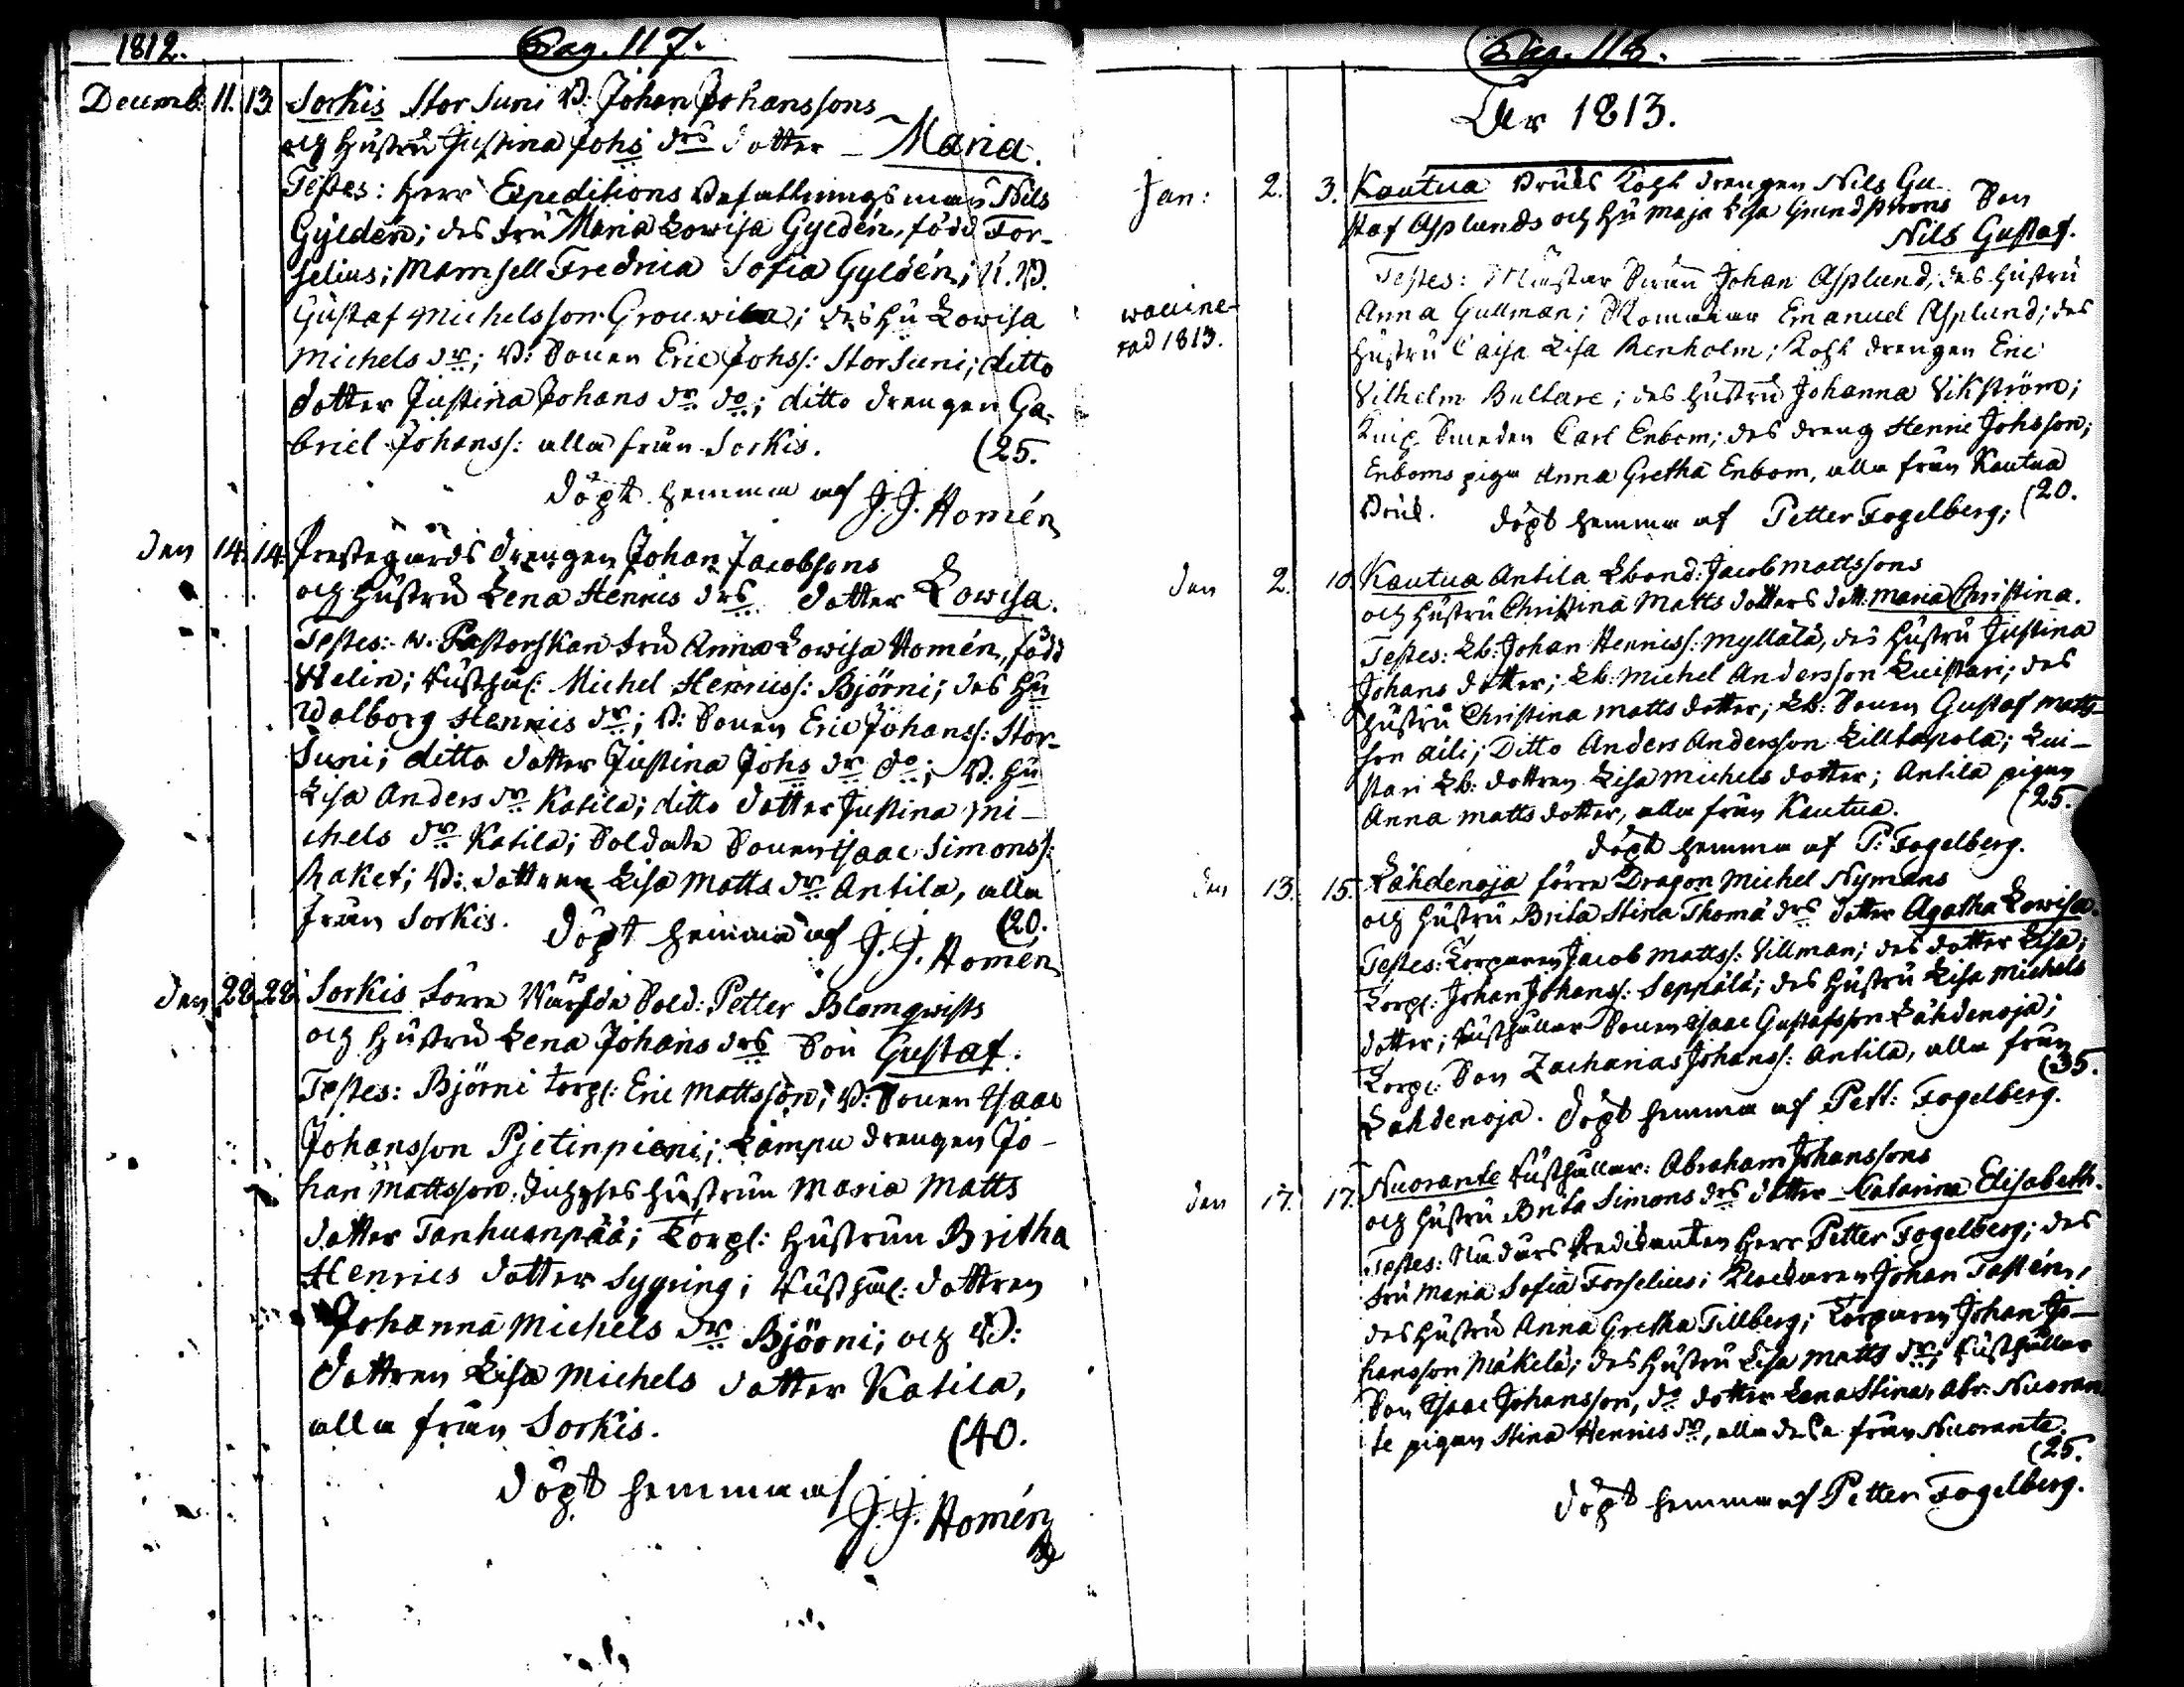 1812.
Pag. 117.
Decemb: 11. 13. Sorkis Stor Suni B: Johan Johanssons
och Hustru Justina Johs drs dotter — Maria.
Testes: Herr Expeditions Befallningsman Nils
Gyldén; des fru Maria Lowisa Gyldén, född For-
selius; Mamsell Fredrica Sofia Gyldén; N. B.
Gustaf Michelsson Grouwila; des Hu Lowisa
Michels dr; B: Sonen Eric Johss: StorSuni; ditto
dotter Justina Johans dr do; ditto drengen Ga-
briel Johanss: alla från Sorkis. (25.
döpt hemma af J. J. Homén
den 14. 14. Prestegårds drengen Johan Jacobsons
och Hustru Lena Henrics drs dotter Lowisa.
Testes: w. Pastorskan fru Anna Lowisa Homén, född
Welin; Rusthål: Michel Henricss: Björni; des Hu
Walborg Henrics dr; B: Sonen Eric Johanss: Stor-
Suni; ditto dotter Justina Johs dr do; B: Hu
Lisa Anders dr Katila; ditto dotter Justina Mi-
chels dr Katila; Soldate Sonen Isaac Simonss:
Raket; B: dottren Lisa Matts dr Antila, alla
från Sorkis. (20.
döpt hemma af J. J. Homén
den 28. 28. Sorkis förre Sold: Petter Blomqwists
och Hustru Lena Johans drs Son Gustaf.
Testes: Björni torp: Eric Mattsson; B: Sonen Isaac
Johansson Pjetinpieni; Lampu drengen Jo-
han Mattsson. hustrun Maria Matts
dotter Tanhuanpää; Torp: Hustrun Britha
Henrics dotter Sygring; Rusthål: dottren
Johanna Michels dr Björni; och B:
dottren Lisa Michels dotter Katila,
alla från Sorkis. (40.
döpt hemma af
J. J. Homén
Pag. 118.
År 1813.
Jan: 2. 3. Kautua Bruks Kohl drengen Nils Gu-
staf Asplunds och Hu Maja Lisa Grundströms Son
Nils Gustaf.
Testes: Johan Asplund, des Hustru
Anna Gullman; Emanuel Asplund; des
wacine-
rad 1813.
Hustru Caisa Lisa Renholm; Kohl drengen Eric
Vilhelm Bullare; des Hustru Johanna Vikström;
Knip Smeden Carl Enbom; des dreng Henric Johsson;
Enboms piga Anna Gretha Enbom, alla från Kautua
Bruk. (20.
döpt hemma af Petter Fogelberg;
den 2. 10. Kautua Antila Lbond: Jacob Mattssons
och Hustru Christina Matts dotters dott: Maria Christina.
Testes: Lb: Johan Henricss: Myllälä, des Hustru Justina
Johans dotter; Lb: Michel Andersson Luistari; des
Hustru Christina Matts dotter; Lb: Sonen Gustaf Matts-
son Äili; Ditto Anders Andersson Lilltapola; Lui-
stari Lb: dottren Lisa Michels dotter; Antila pigan
Anna Matts dotter, alla från Kautua. (25.
döpt hemma af P: Fogelberg.
den 13. 15. Lähdenoja förre Dragon Michel Nymans
och Hustru Brita Stina Thomä drs dotter Agatha Lowisa.
Testes: Torparen Jacob Mattss: Villman; des dotter Lisa;
Torp: Johan Johanss: Seppälä; des Hustru Lisa Michels
dotter; Rusthållar Sonen Isaac Gustafsson Lähdenoja;
Torp: Son Zacharias Johanss: Antila, alla från
Lähdenoja. (35.
döpt hemma af Pett: Fogelberg.
den 17. 17. Nuorante Rusthållar: Abraham Johanssons
och Hustru Brita Simons drs dotter Catarina Elisabeth.
Testes: Nådårs Predikanten Herr Petter Fogelberg; des
fru Maria Sofia Forselius; Klockaren Johan Tastén;
des Hustru Anna Gretha Tillberg; Torparen Johan Jo-
hansson Mäkelä; des Hustru Lisa Matts dr; Rusthållar
Son Isaac Johansson, do dotter Lena Stina, Abr: Nuoran-
te pigan Stina Henrics dr, alla desse från Nuorante.
(25.
döpt hemma af Petter Fogelberg.